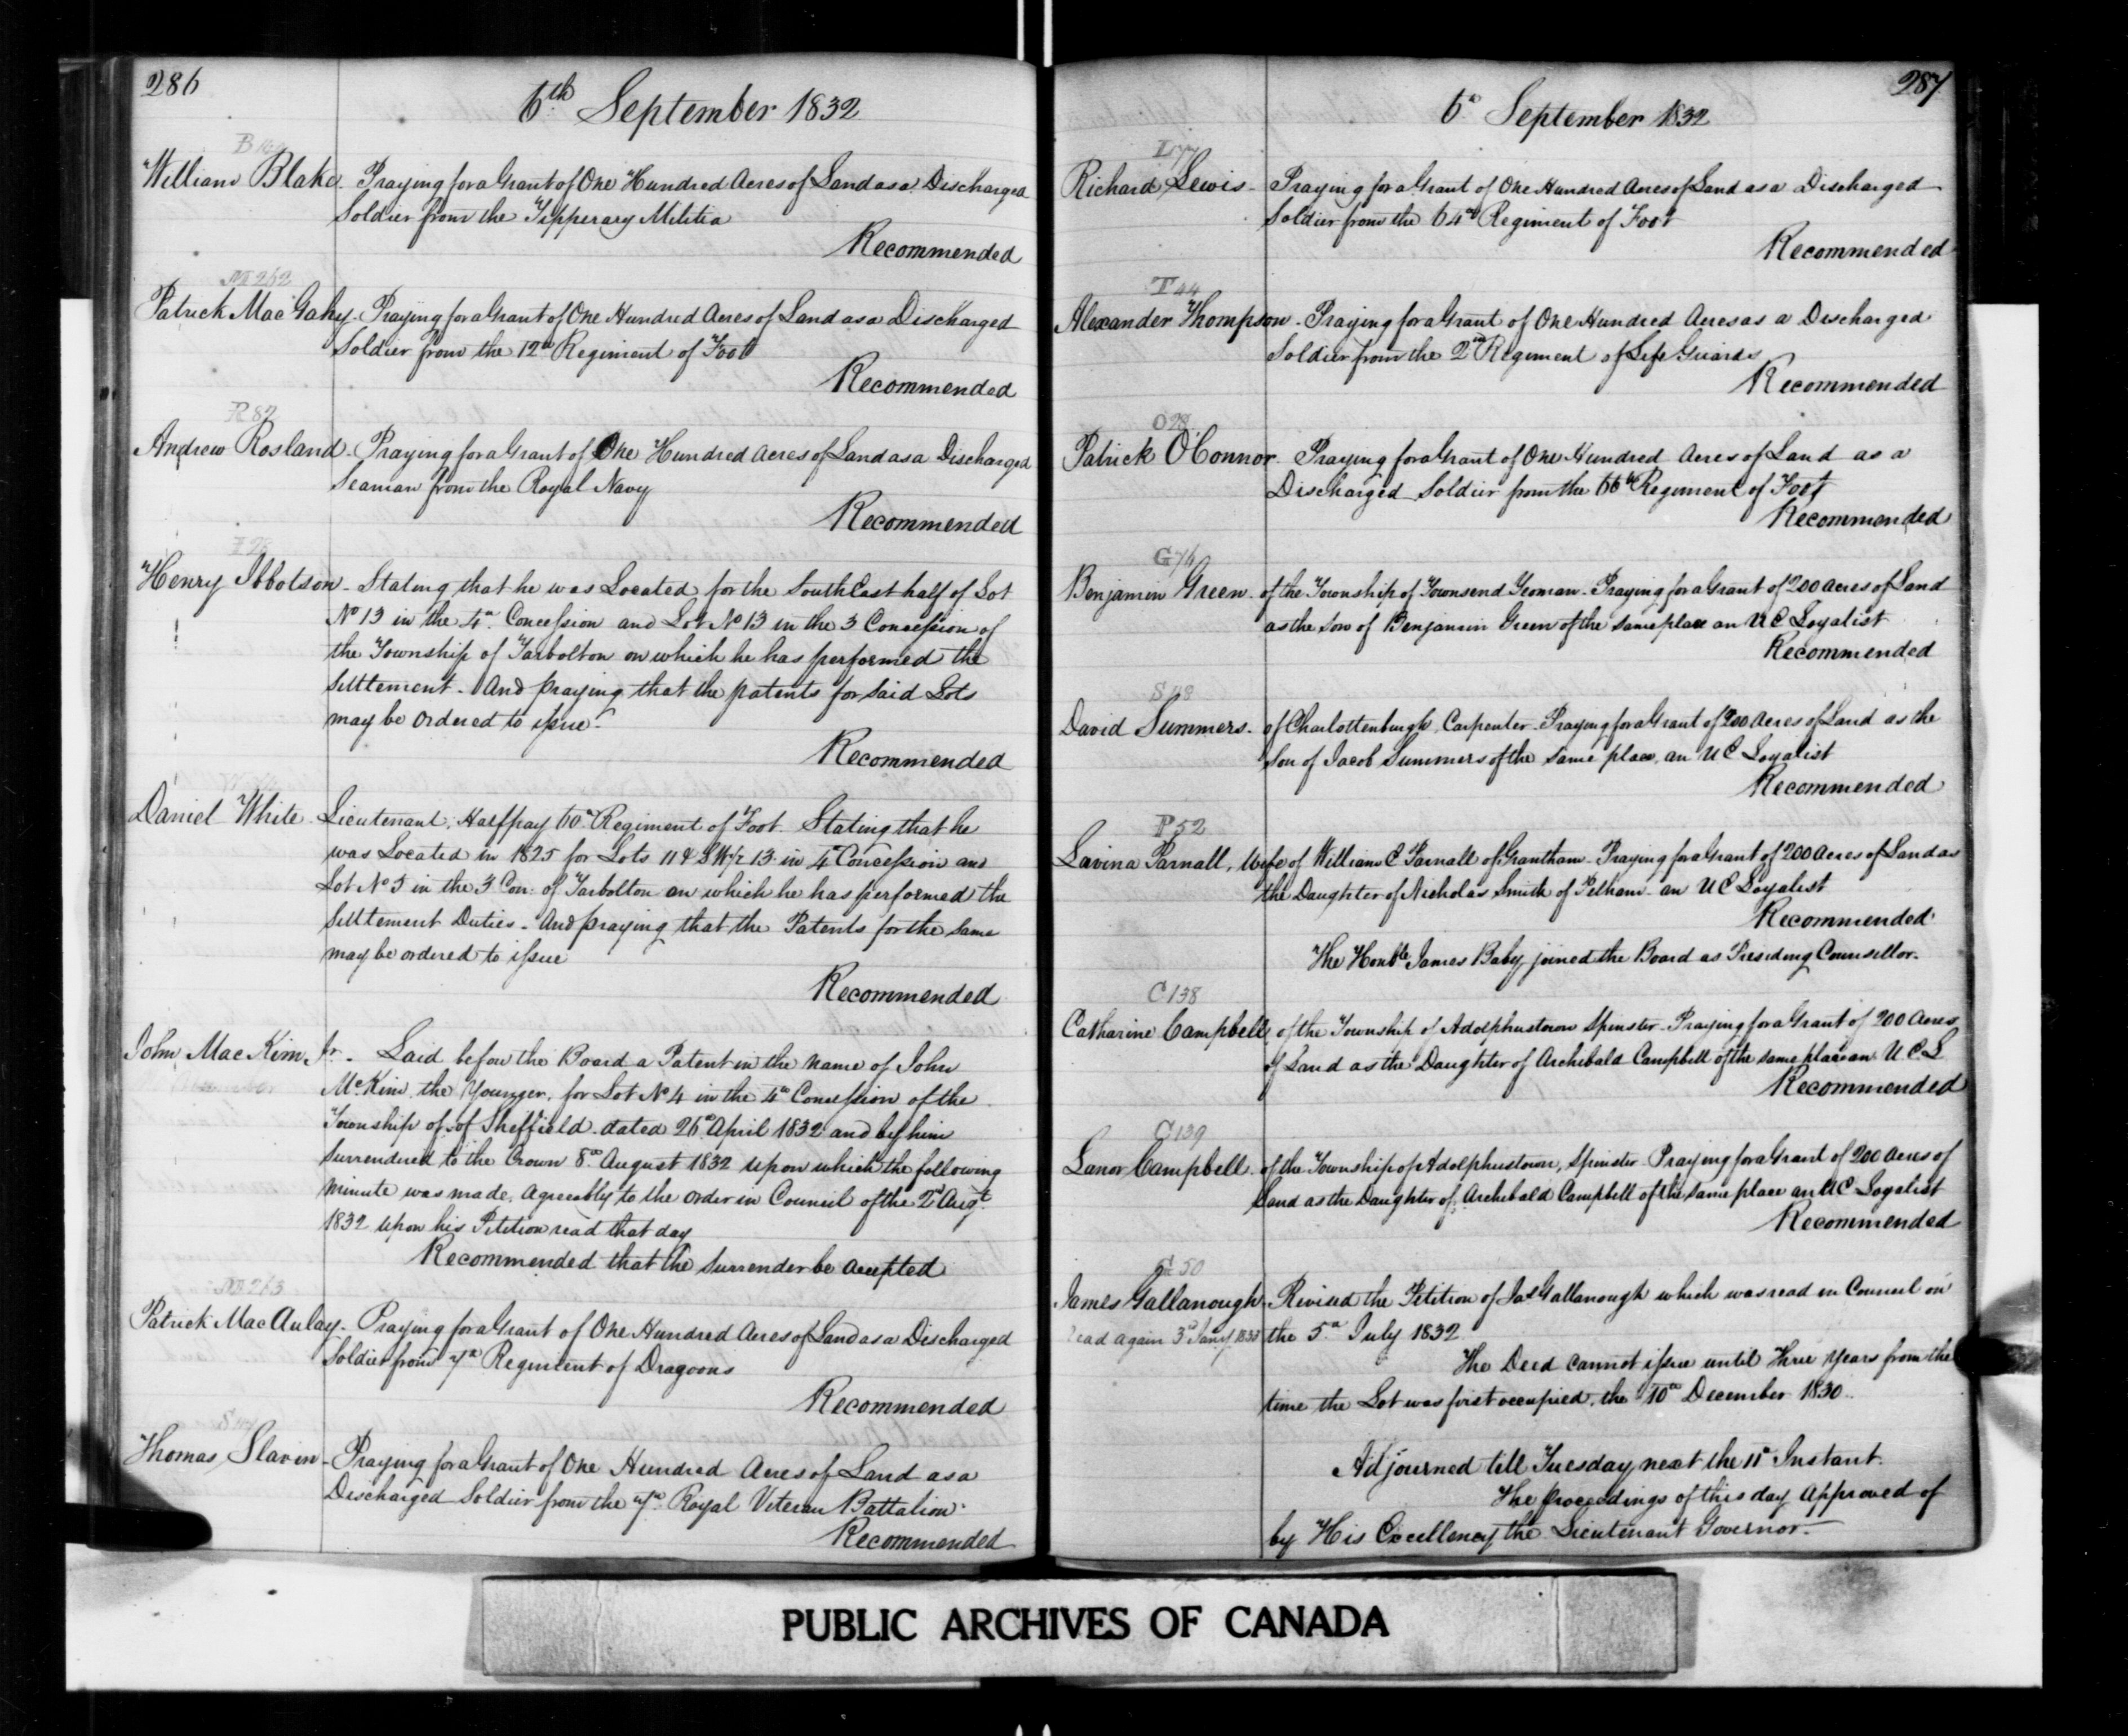 286
6th September 1832
William Blake. Praying for a Grant of One Hundred Acres of Land as a Discharged
Soldier from the Tipperary Militia
Recommended
M 262
Patrick MacGahy. Praying for a Grant of One Hundred Acres of Land as a Discharged
Soldier from the 12th Regiment of Foot
Recommended
R 82
Andrew Rosland. Praying for a Grant of One Hundred Acres of Land as a Discharged
Seaman from the Royal Navy
Recommended
Henry Ibbotson. Stating that he was Located for the South East half of Lot
No 13 in the 4th Concession and Lot No 13 in the 3 Concession of
the Township of Tarbolton on which he has performed the
Settlement. And praying that the patents for said Lots
may be ordered to issue.
Recommended
Daniel White. Lieutenant, Halfpay 60th Regiment of Foot. Stating that he
was Located in 1825 for Lots 11 & SW 1/2 13 in 4th Concession and
Lot No 5 in the 3 Con. of Tarbolton on which he has performed the
Settlement Duties. And praying that the Patents for the same
may be ordered to issue
Recommended
John MacKim, Jr. Laid before the Board a Patent in the name of John
McKim, the Younger, for Lot No 4 in the 4th Concession of the
Township of of Sheffield dated 26th April 1832 and by him
surrendered to the Crown 8th August 1832 upon which the following
minute was made, agreeably to the order in Council of the 2d Augt
1832 upon his Petition read that day
Recommended that the surrender be accepted
M 263
Patrick MacAulay. Praying for a Grant of One Hundred Acres of Land as a Discharged
Soldier from 7th Regiment of Dragoons
Recommended
Thomas Slavin. Praying for a Grant of One Hundred Acres of Land as a
Discharged Soldier from the 7th Royal Veteran Battalion.
Recommended
287
6th September 1832
L 77
Richard Lewis. Praying for a Grant of One Hundred Acres of Land as a Discharged
Soldier from the 64th Regiment of Foot
Recommended
T 44
Alexander Thompson. Praying for a Grant of One Hundred Acres as a Discharged
Soldier from the 2nd Regiment of Life Guards
Recommended
O 28
Patrick O'Connor. Praying for a Grant of One Hundred Acres of Land as a
Discharged Soldier from the 66th Regiment of Foot
Recommended
G 76
Benjamin Green. of the Township of Townsend Yeoman. Praying for a Grant of 200 acres of Land
as the son of Benjamin Green of the same place an UE Loyalist
Recommended
David Summers. of Charlottenburgh Carpenter. Praying for a Grant of 200 Acres of Land as the
Son of Jacob Summers of the same place, an UE Loyalist
Recommended
P 52
Lavina Parnall, Wife of William C Parnall of Grantham. Praying for a Grant of 200 Acres of Land as
the Daughter of Nicholas Smith of Pelham an UE Loyalist
Recommended
The Honble James Baby joined the Board as Presiding Counsellor.
C 138
Catharine Campbell, of the Township of Adolphustown Spinster. Praying for a Grant of 200 Acres
of Land as the Daughter of Archibald Campbell of the same place an U E L
Recommended
C 139
Lanor Campbell. of the Township of Adolphustown, Spinster Praying for a Grant of 200 Acres of
Land as the Daughter of Archibald Campbell of the same place an UE Loyalist
Recommended
G 50
James Gallanough. Revised the Petition of Jas Gallanough which was read in Council on
read again 3d Jany 1833 the 5th July 1832
The Deed cannot issue until three years from the
time the Lot was first occupied, the 10th December 1830.
Adjourned till Tuesday next the 11th Instant.
The proceedings of this day Approved of
by His Excellency the Lieutenant Governor.
PUBLIC ARCHIVES OF CANADA